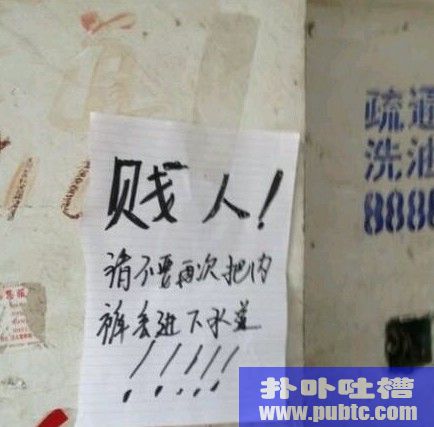 贱人！
请不要再次把内
裤丢进下水道
！！！！！
疏通
洗油
888
扑卟吐槽
www.pubtc.com